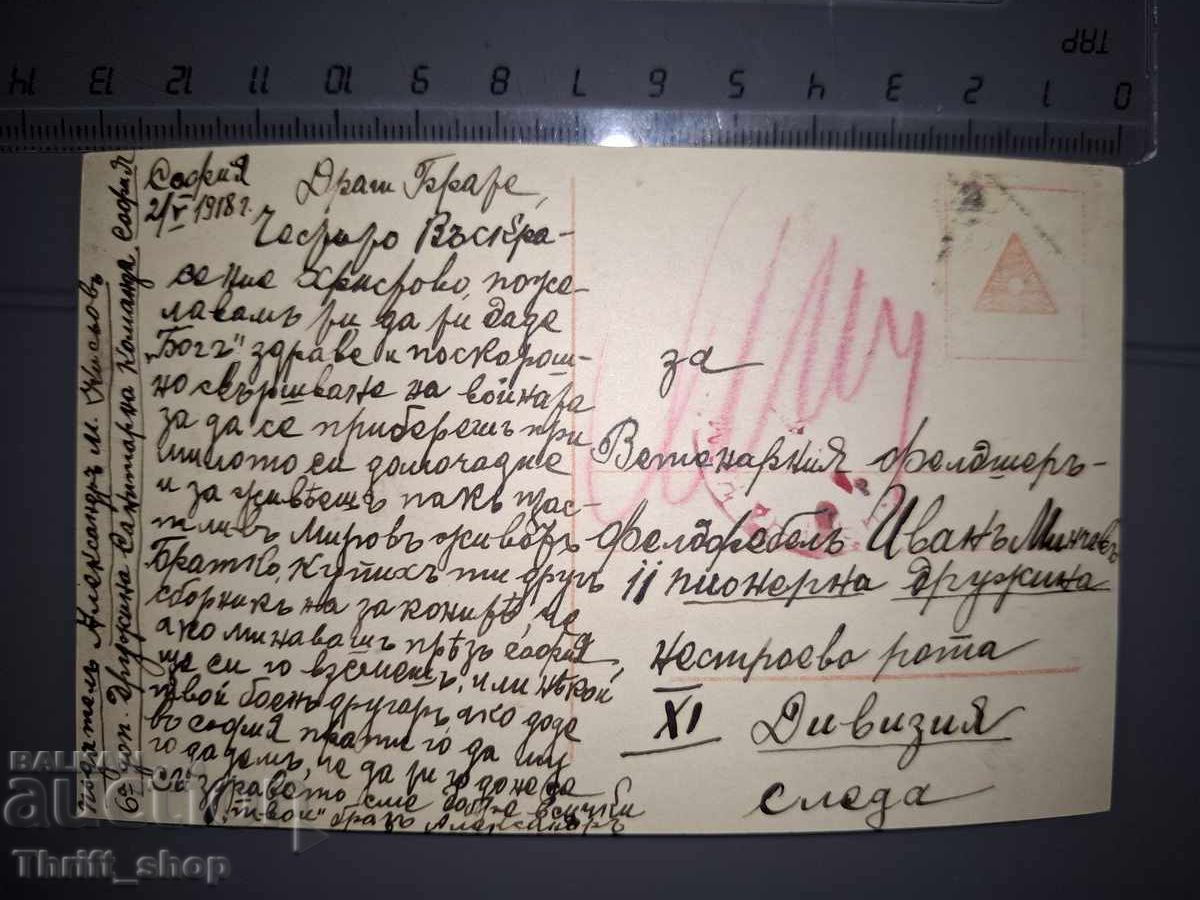 TRP
0 1 2 3 4 5 6 7 8 9 10 11 12 13 14
София
2/V 1918 г.
Драги Брате,
Честито Въскре-
сение Христово, поже-
лавамъ ти да ти даде
"Богъ" здраве и поскорош-
но свършване на войната
за да се приберешъ при
милото си домочадие
и заживѣешъ пакъ щас-
тливъ мировъ животъ
Братко, купихъ ти другъ
сборникъ на законитѣ, че
ако минавашъ прѣзъ София,
ще си го вземешъ, или нѣкой
твой боенъ другаръ ако доде
въ София прати го да му
го дадемъ, че да ти го донесе
Съ здравето сме добре всички
"твой" братъ Александръ
Подателъ Александръ М. Кисьовъ
6а доп. Дружина Санитарна Команда София
за
Ветенарния фелдшеръ-
фелдфебелъ Иванъ Минчевъ
11 пионерна дружина
нестроева рота
XI Дивизия
следа
BALKAN
auction
Thrift_shop